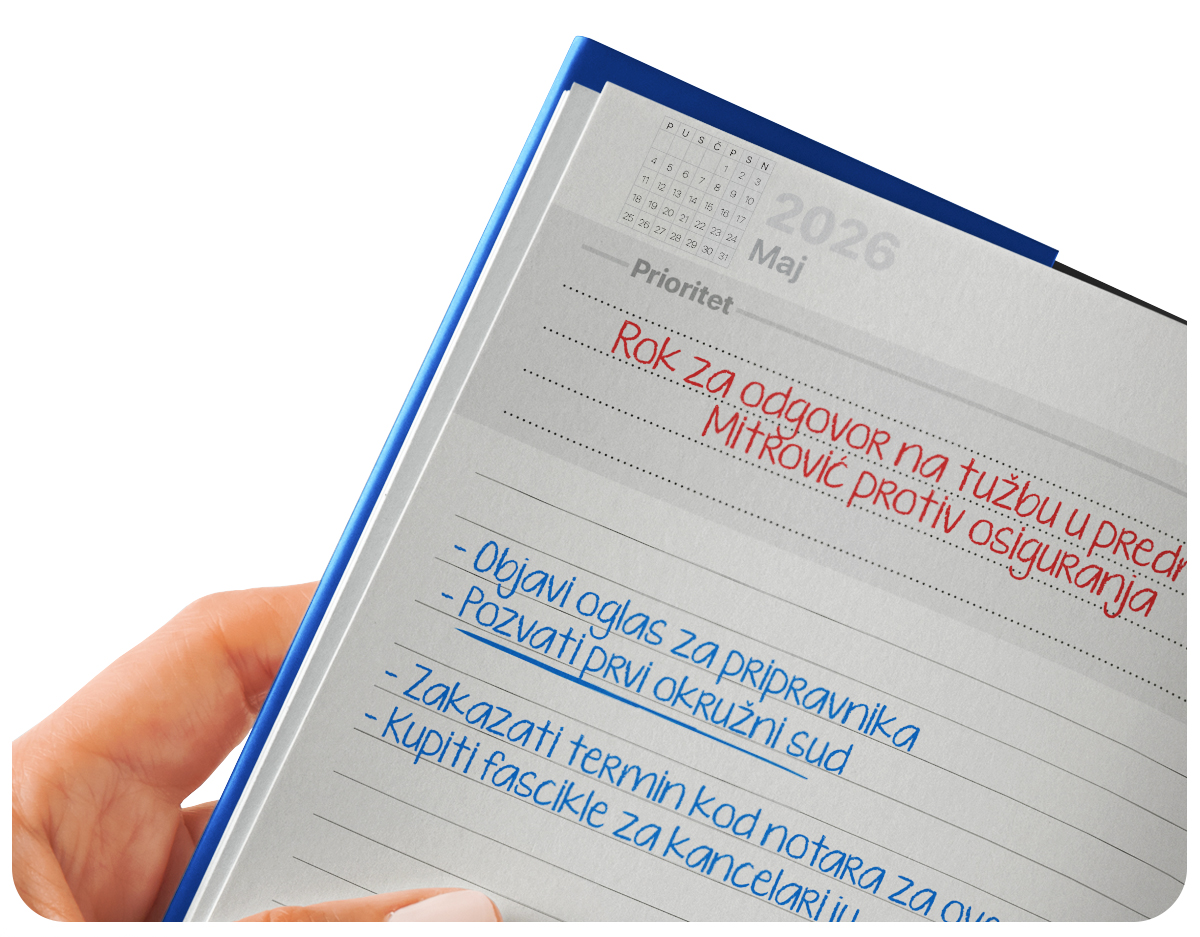 P U S Č P S N
1 2 3
4 5 6 7 8 9 10
11 12 13 14 15 16 17
18 19 20 21 22 23 24
25 26 27 28 29 30 31
2026
Maj
Prioritet
Rok za odgovor na tužbu u
Mitrović protiv osiguranja
- Objavi oglas za pripravnika
- Pozvati prvi okružni sud
- Zakazati termin kod notara za
- Kupiti fascikle za kancelariju